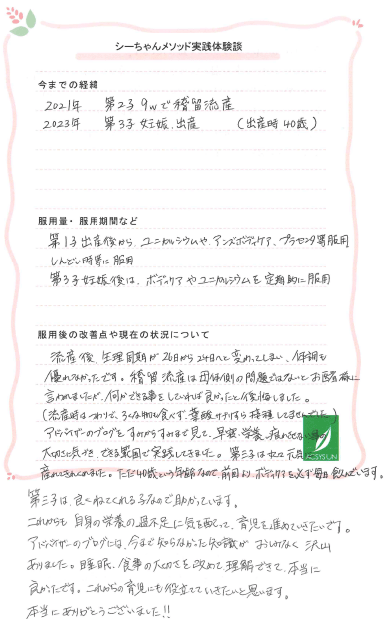 シーちゃんメソッド実践体験談
今までの経緯
2021年 第2子 9wで稽留流産
2023年 第3子 妊娠、出産 (出産時40歳)
服用量・服用期間など
第1子出産後から、ユニカルシウムや、アンズボディケア、プラセンタ等服用
しんどい時等に服用
第3子妊娠後は、ボディケアやユニカルシウムを定期的に服用
服用後の改善点や現在の状況について
流産後、生理周期が26日から24日へと変わってしまい、体調も
優れなかったです。稽留流産は母体側の問題ではないとお医者様に
言われましたが、何かできる事をしていれば良かったと後悔しました。
(流産時はつわりで、ろくな物も食べず、葉酸サプリすら接種してませんでした)
アドバイザーのブログをすみからすみまで見て、早寝、栄養、疲れさせない
大切に気づき、できる範囲で実践してきました。第三子は元気に
産まれてきてくれました。ただ40歳という年齢なので、前回より、ボディケアを必ず毎日飲んでいます。
第三子は、良くねてくれる子なので助かっています。
これからも自身の栄養の過不足に気を配って、育児を進めていきたいです。
アドバイザーのブログには、今まで知らなかった知識がおしげなく沢山
ありました。睡眠、食事の大切さを改めて理解できて、本当に
良かったです。これからの育児にも役立てていきたいと思います。
本当にありがとうございました!!